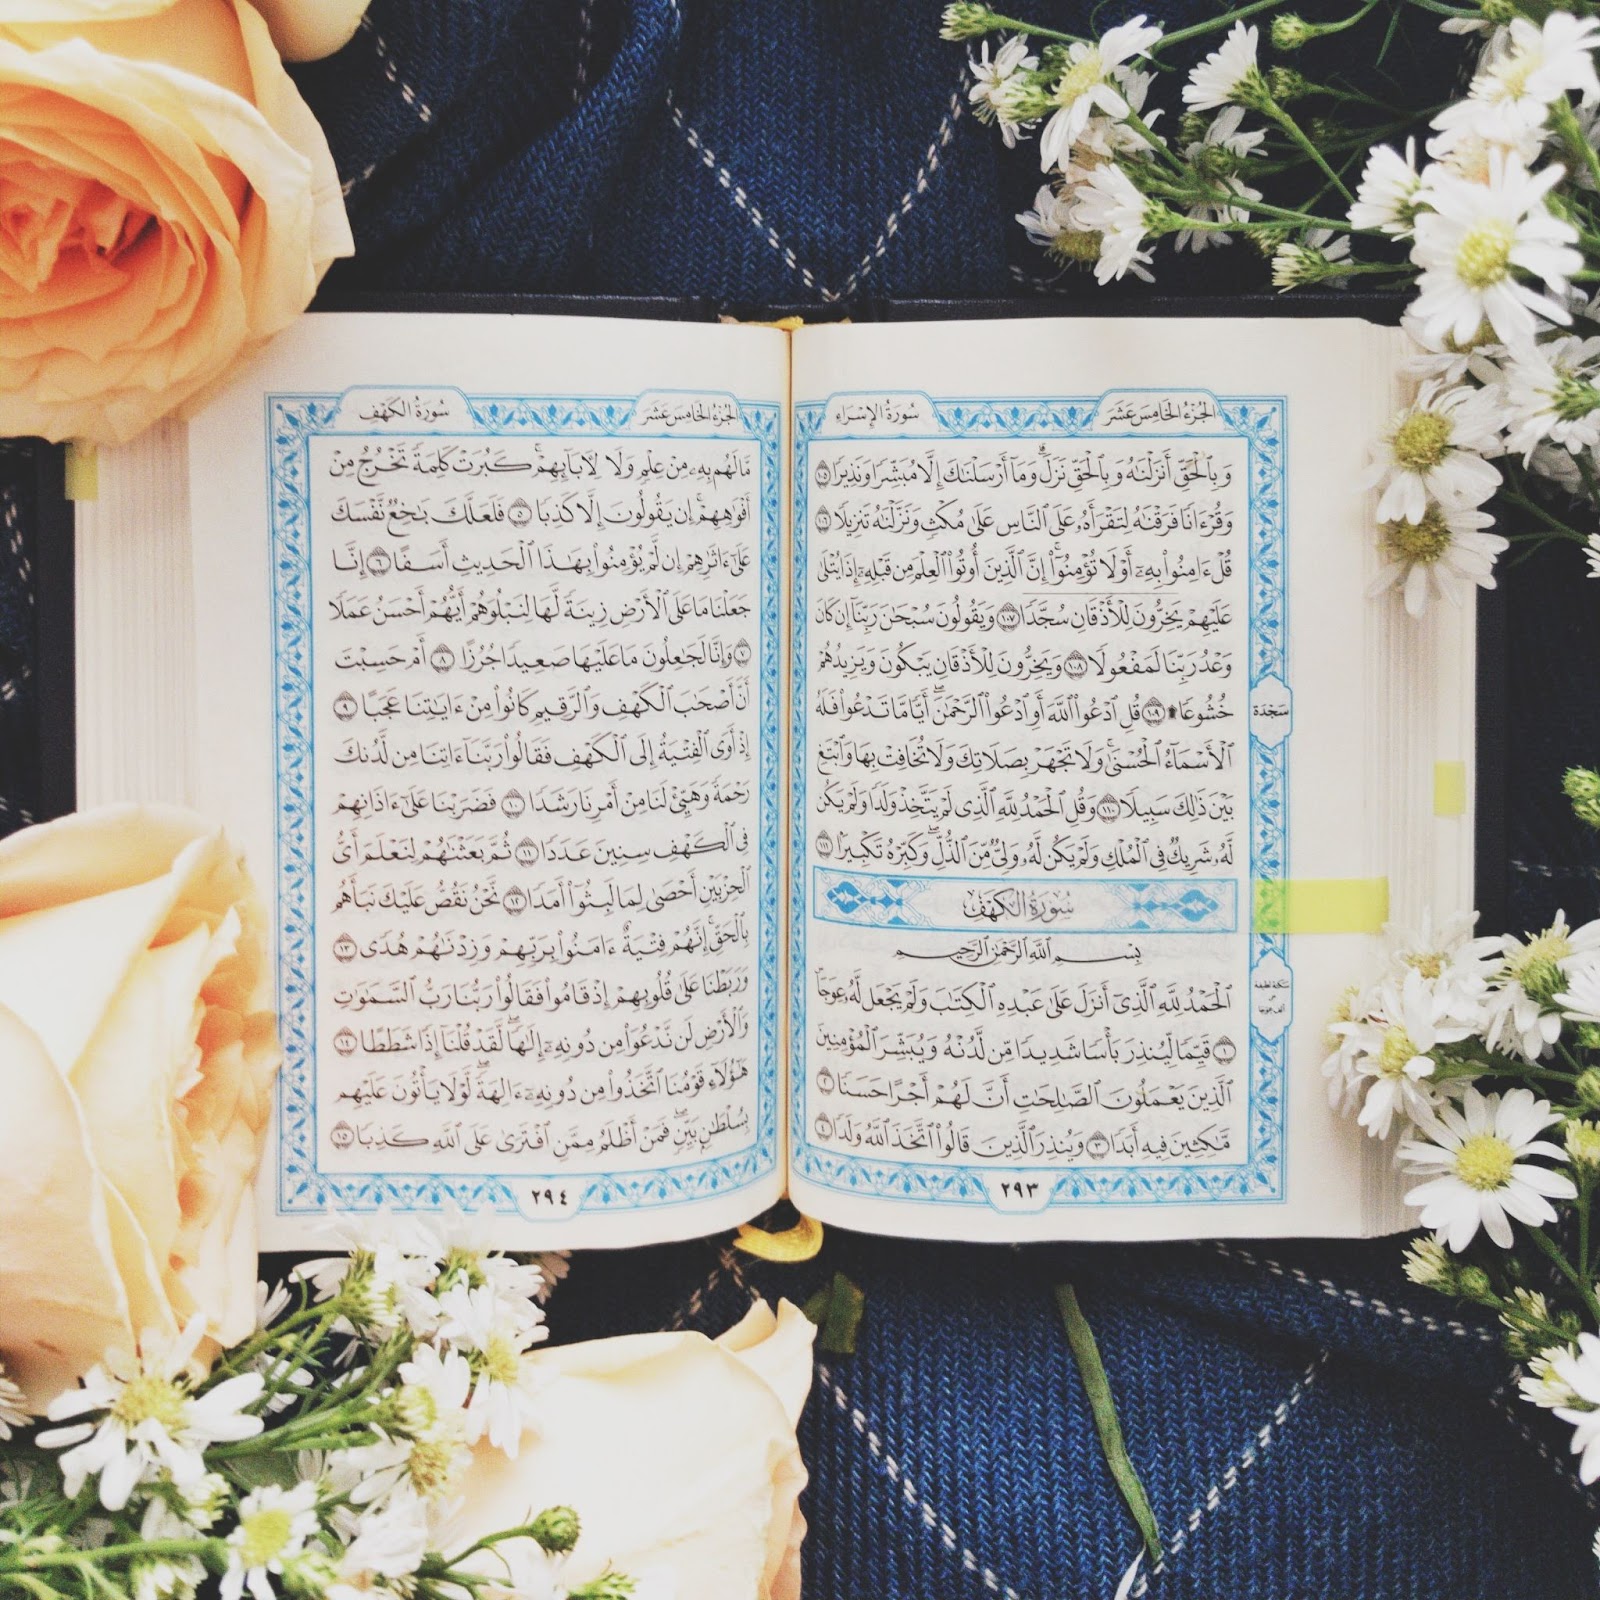 الجُزْءُ الخَامِسَ عَشَرَ
سُورَةُ الإِسْرَاءِ
وَبِٱلْحَقِّ أَنزَلْنَٰهُ وَبِٱلْحَقِّ نَزَلَ ۗ وَمَآ أَرْسَلْنَٰكَ إِلَّا مُبَشِّرًا وَنَذِيرًا ١٠٥
وَقُرْءَانًا فَرَقْنَٰهُ لِتَقْرَأَهُۥ عَلَى ٱلنَّاسِ عَلَىٰ مُكْثٍ وَنَزَّلْنَٰهُ تَنزِيلًا ١٠٦
قُلْ ءَامِنُوا۟ بِهِۦٓ أَوْ لَا تُؤْمِنُوٓا۟ ۚ إِنَّ ٱلَّذِينَ أُوتُوا۟ ٱلْعِلْمَ مِن قَبْلِهِۦٓ إِذَا يُتْلَىٰ
عَلَيْهِمْ يَخِرُّونَ لِلْأَذْقَانِ سُجَّدًا ١٠٧ وَيَقُولُونَ سُبْحَٰنَ رَبِّنَآ إِن كَانَ
وَعْدُ رَبِّنَا لَمَفْعُولًا ١٠٨ وَيَخِرُّونَ لِلْأَذْقَانِ يَبْكُونَ وَيَزِيدُهُمْ
خُشُوعًا ۩ ١٠٩ قُلِ ٱدْعُوا۟ ٱللَّهَ أَوِ ٱدْعُوا۟ ٱلرَّحْمَٰنَ ۖ أَيًّا مَّا تَدْعُوا۟ فَلَهُ
ٱلْأَسْمَآءُ ٱلْحُسْنَىٰ ۚ وَلَا تَجْهَرْ بِصَلَاتِكَ وَلَا تُخَافِتْ بِهَا وَٱبْتَغِ
بَيْنَ ذَٰلِكَ سَبِيلًا ١١٠ وَقُلِ ٱلْحَمْدُ لِلَّهِ ٱلَّذِى لَمْ يَتَّخِذْ وَلَدًا وَلَمْ يَكُن
لَّهُۥ شَرِيكٌ فِى ٱلْمُلْكِ وَلَمْ يَكُن لَّهُۥ وَلِىٌّ مِّنَ ٱلذُّلِّ ۖ وَكَبِّرْهُ تَكْبِيرًۢا ١١١
سُورَةُ الكَهْفِ
بِسْمِ ٱللَّهِ ٱلرَّحْمَٰنِ ٱلرَّحِيمِ
ٱلْحَمْدُ لِلَّهِ ٱلَّذِىٓ أَنزَلَ عَلَىٰ عَبْدِهِ ٱلْكِتَٰبَ وَلَمْ يَجْعَل لَّهُۥ عِوَجَا ۜ
١ قَيِّمًا لِّيُنذِرَ بَأْسًا شَدِيدًا مِّن لَّدُنْهُ وَيُبَشِّرَ ٱلْمُؤْمِنِينَ
ٱلَّذِينَ يَعْمَلُونَ ٱلصَّٰلِحَٰتِ أَنَّ لَهُمْ أَجْرًا حَسَنًا ٢
مَّٰكِثِينَ فِيهِ أَبَدًا ٣ وَيُنذِرَ ٱلَّذِينَ قَالُوا۟ ٱتَّخَذَ ٱللَّهُ وَلَدًا ٤
سَجْدَة
سكتة لطيفة
على
ألف عوجا
٢٩٣
الجُزْءُ الخَامِسَ عَشَرَ
سُورَةُ الكَهْفِ
مَّا لَهُم بِهِۦ مِنْ عِلْمٍ وَلَا لِءَابَآئِهِمْ ۚ كَبُرَتْ كَلِمَةً تَخْرُجُ مِنْ
أَفْوَٰهِهِمْ ۚ إِن يَقُولُونَ إِلَّا كَذِبًا ٥ فَلَعَلَّكَ بَٰخِعٌ نَّفْسَكَ
عَلَىٰٓ ءَاثَٰرِهِمْ إِن لَّمْ يُؤْمِنُوا۟ بِهَٰذَا ٱلْحَدِيثِ أَسَفًا ٦ إِنَّا
جَعَلْنَا مَا عَلَى ٱلْأَرْضِ زِينَةً لَّهَا لِنَبْلُوَهُمْ أَيُّهُمْ أَحْسَنُ عَمَلًا
٧ وَإِنَّا لَجَٰعِلُونَ مَا عَلَيْهَا صَعِيدًا جُرُزًا ٨ أَمْ حَسِبْتَ
أَنَّ أَصْحَٰبَ ٱلْكَهْفِ وَٱلرَّقِيمِ كَانُوا۟ مِنْ ءَايَٰتِنَا عَجَبًا ٩
إِذْ أَوَى ٱلْفِتْيَةُ إِلَى ٱلْكَهْفِ فَقَالُوا۟ رَبَّنَآ ءَاتِنَا مِن لَّدُنكَ
رَحْمَةً وَهَيِّئْ لَنَا مِنْ أَمْرِنَا رَشَدًا ١٠ فَضَرَبْنَا عَلَىٰٓ ءَاذَانِهِمْ
فِى ٱلْكَهْفِ سِنِينَ عَدَدًا ١١ ثُمَّ بَعَثْنَٰهُمْ لِنَعْلَمَ أَىُّ
ٱلْحِزْبَيْنِ أَحْصَىٰ لِمَا لَبِثُوٓا۟ أَمَدًا ١٢ نَّحْنُ نَقُصُّ عَلَيْكَ نَبَأَهُم
بِٱلْحَقِّ ۚ إِنَّهُمْ فِتْيَةٌ ءَامَنُوا۟ بِرَبِّهِمْ وَزِدْنَٰهُمْ هُدًى ١٣
وَرَبَطْنَا عَلَىٰ قُلُوبِهِمْ إِذْ قَامُوا۟ فَقَالُوا۟ رَبُّنَا رَبُّ ٱلسَّمَٰوَٰتِ
وَٱلْأَرْضِ لَن نَّدْعُوَا۟ مِن دُونِهِۦٓ إِلَٰهًا ۖ لَّقَدْ قُلْنَآ إِذًا شَطَطًا ١٤
هَٰٓؤُلَآءِ قَوْمُنَا ٱتَّخَذُوا۟ مِن دُونِهِۦٓ ءَالِهَةً ۖ لَّوْلَا يَأْتُونَ عَلَيْهِم
بِسُلْطَٰنٍۭ بَيِّنٍ ۖ فَمَنْ أَظْلَمُ مِمَّنِ ٱفْتَرَىٰ عَلَى ٱللَّهِ كَذِبًا ١٥
٢٩٤